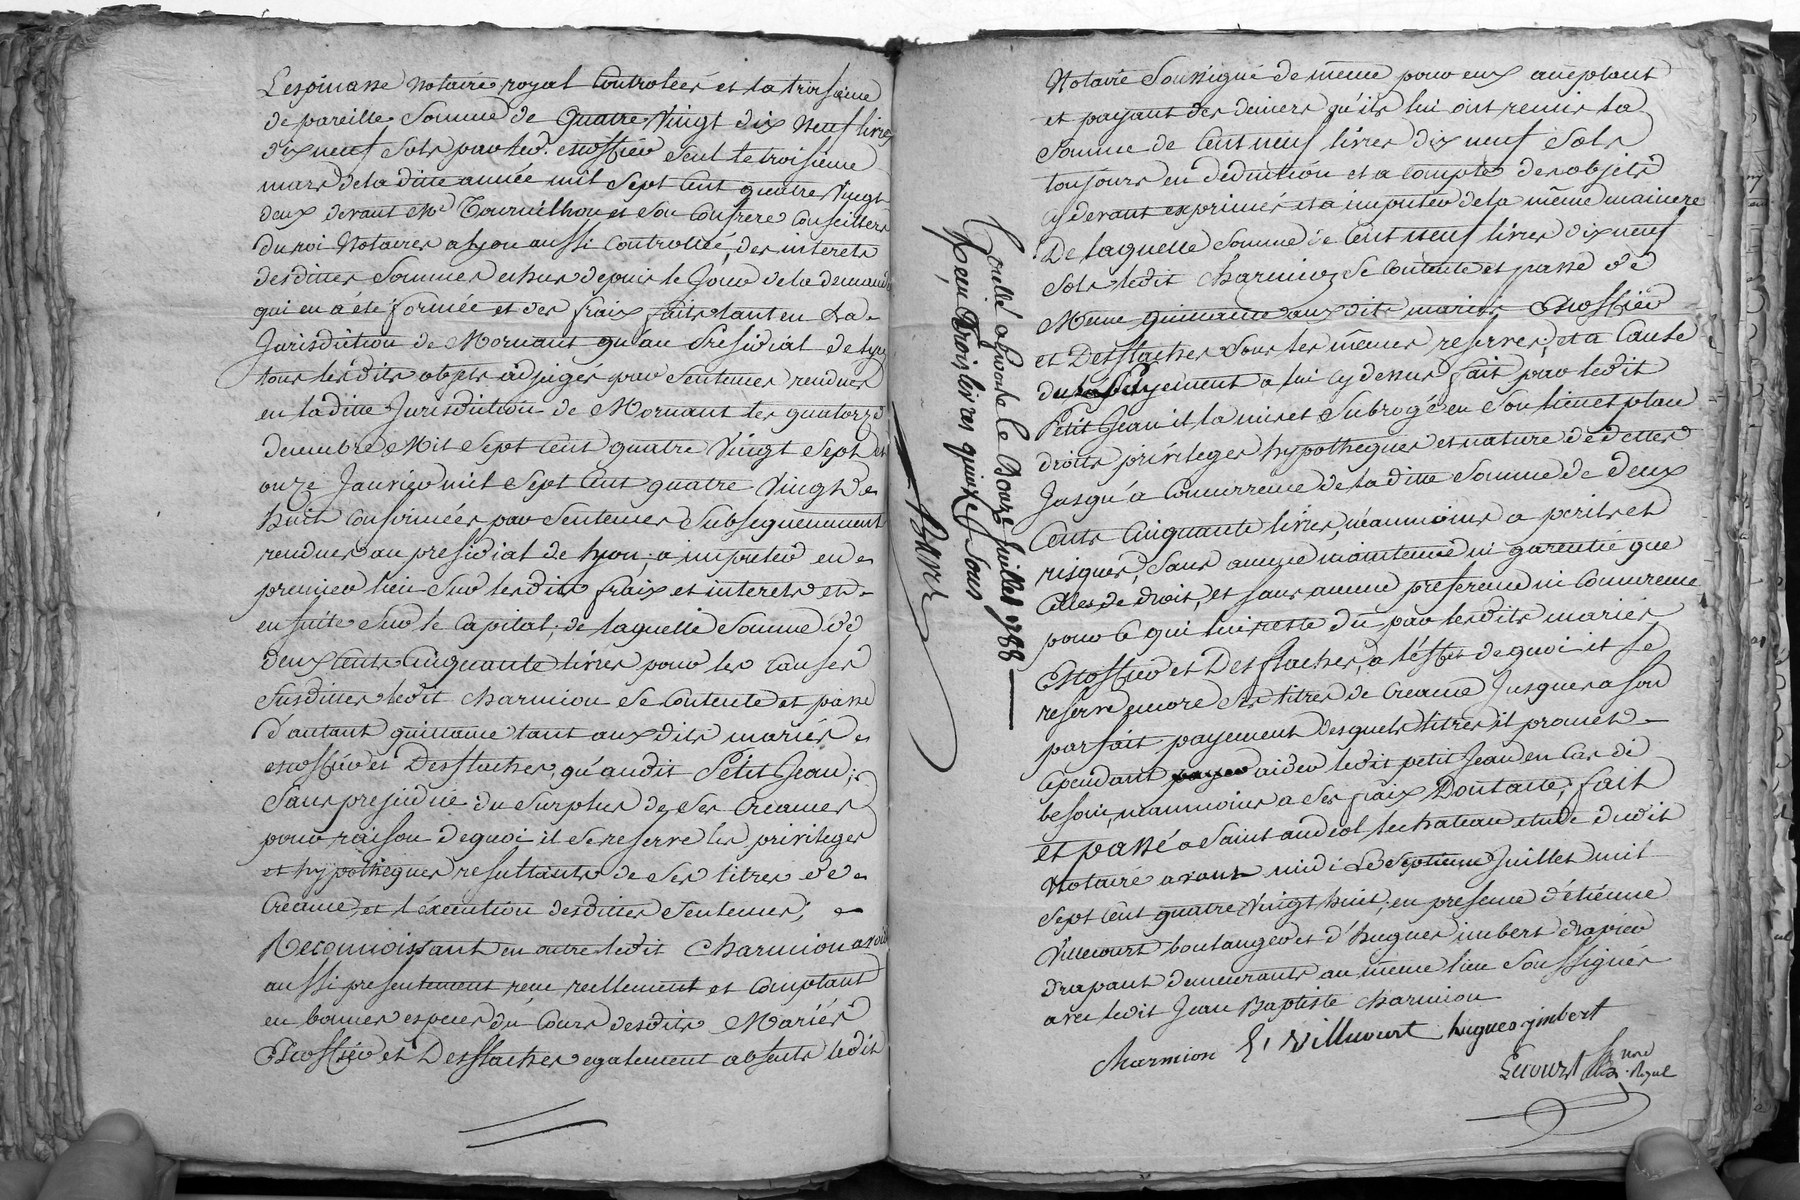 Lespinasse Notaire royal Controlées et la troisième
de pareille Somme de quatre Vingt dix Neuf livres
dix neuf Sols par led. Escoffier Seul le troisième
mars de la ditte année mil Sept Cent quatre Vingt
deux devant Me Tournilhon et Son Confrere Conseillers
du roi Notaires a Lyon aussi Controllée, des interets
desdittes Sommes echus depuis le Jour de la demande
qui en a été formée et des fraix faits tant en La
Jurisdiction de Mornant qu'au Présidial de Lyon
tous lesdits objets adjugés par Sentences rendues
en laditte Jurisdiction de Mornant les quatorze
decembre Mil Sept Cent quatre Vingt Sept et
onze Janvier mil Sept Cent quatre Vingt
huit confirmées par Sentences Subsequemment
rendues au présidial de Lyon, a imputer en
premier lieu Sur lesdits fraix et interets et
en suite Sur le Capital, de laquelle Somme de
deux Cents Cinquante livres pour les Causes
Susdittes ledit Charmion Se Contente et passe
d'autant quittance tant auxdits mariés
escoffier et Desflaches, qu'audit Petit Jean,
Sans prejudice du Surplus de Ses Creances
pour raison de quoi il Se reserve les privileges
et hypotheques resultants de Ses titres de
Creance, et l'éxécution desdittes Sentences,
Reconnoissant en outre ledit Charmion avoir
aussi presentement reçu reellement et Comptant
en bonnes especes du Cours desdits Mariés
Escoffier et Desflaches egalement absents ledit
Notaire Soussigné de même pour eux acceptant
et payant des deniers qu'ils lui ont remis la
Somme de Cent neuf livres dix neuf Sols
toujours en déduction et a compte des objets
cy devant exprimés et a imputer de la même maniere
De laquelle Somme de Cent neuf livres dix neuf
Sols ledit Charmion Se Contente et passe de
Même quittance auxdits mariés Escoffier
et Desflaches Sous les mêmes reserves, et a Cause
du Payement a lui cy dessus fait par ledit
Petit Jean il l'a mis et Subrogé en Son lieu et place
droits privileges hypotheques et nature de dettes
Jusqu'a Concurrence de laditte Somme de deux
Cents Cinquante livres, néanmoins a perils et
risques, Sans aucune maintenue ni garentie que
Celles de droit, et sans aucune preference ni Concurrence
pour Ce qui lui reste dû par lesdits mariés
Escoffier et Desflaches, a l'effet de quoi il Se
reserve encore Ses titres de Creance Jusques a Son
parfait payement desquels titres il promet
Cependant aider ledit petit Jean en Cas de
besoin, néanmoins a Ses fraix Dont acte, fait
et passé a Saint andeol le chateau etude dudit
Notaire avant midi Le Septieme Juillet mil
Sept Cent quatre Vingt huit, en presence d'étienne
Villecourt boulanger et d'hugues imbert drapier
drapant demeurants au même lieu Soussignés
avec ledit Jean Baptiste Charmion
Charmion E. Villecourt hugues jmbert
Nore
Royal
Controllé a le Douze Juillet 1788
Reçu Trois livres quinze Sous